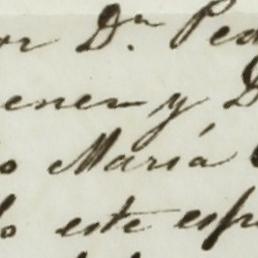 or Dn Ped
ener y D
o María
lo este espr